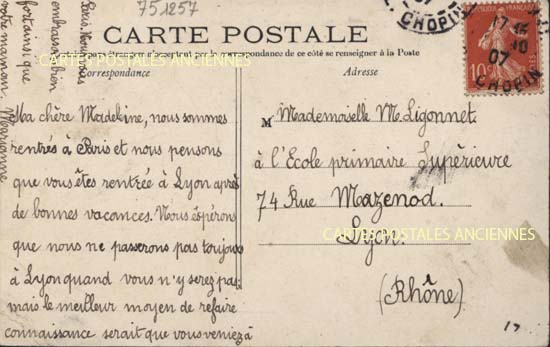 751257
CARTE POSTALE
Tous les pays étrangers n'acceptent pas la correspondance de ce côté se renseigner à la Poste
Correspondance
Adresse
CARTES POSTALES ANCIENNES
Ma chère Madeleine, nous sommes
rentrés à Paris et nous pensons
que vous êtes rentrée à Lyon après
de bonnes vacances. Nous espérons
que nous ne passerons pas toujours
à Lyon quand vous n'y serez pas
mais le meilleur moyen de refaire
connaissance serait que vous veniez à
Paris. Nous vous
embrassons bien
fort ainsi que
votre maman. Marianne
M Mademoiselle M. Ligonnet
à l'Ecole primaire Supérieure
74 Rue Mazenod.
Lyon.
CARTES POSTALES ANCIENNES
(Rhône)
07
CHOPIN
17
10
07
CHOPIN
10